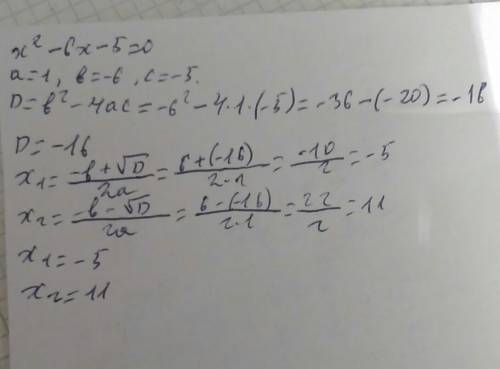 x² - 6x - 5 = 0
a = 1, b = -6, c = -5.
D = b² - 4ac = -6² - 4·1·(-5) = -36 - (-20) = -16
D = -16
x₁ = (-b + √D)/(2a) = (6 + (-16))/(2·1) = -10/2 = -5
x₂ = (-b - √D)/(2a) = (6 - (-16))/(2·1) = 22/2 = 11
x₁ = -5
x₂ = 11